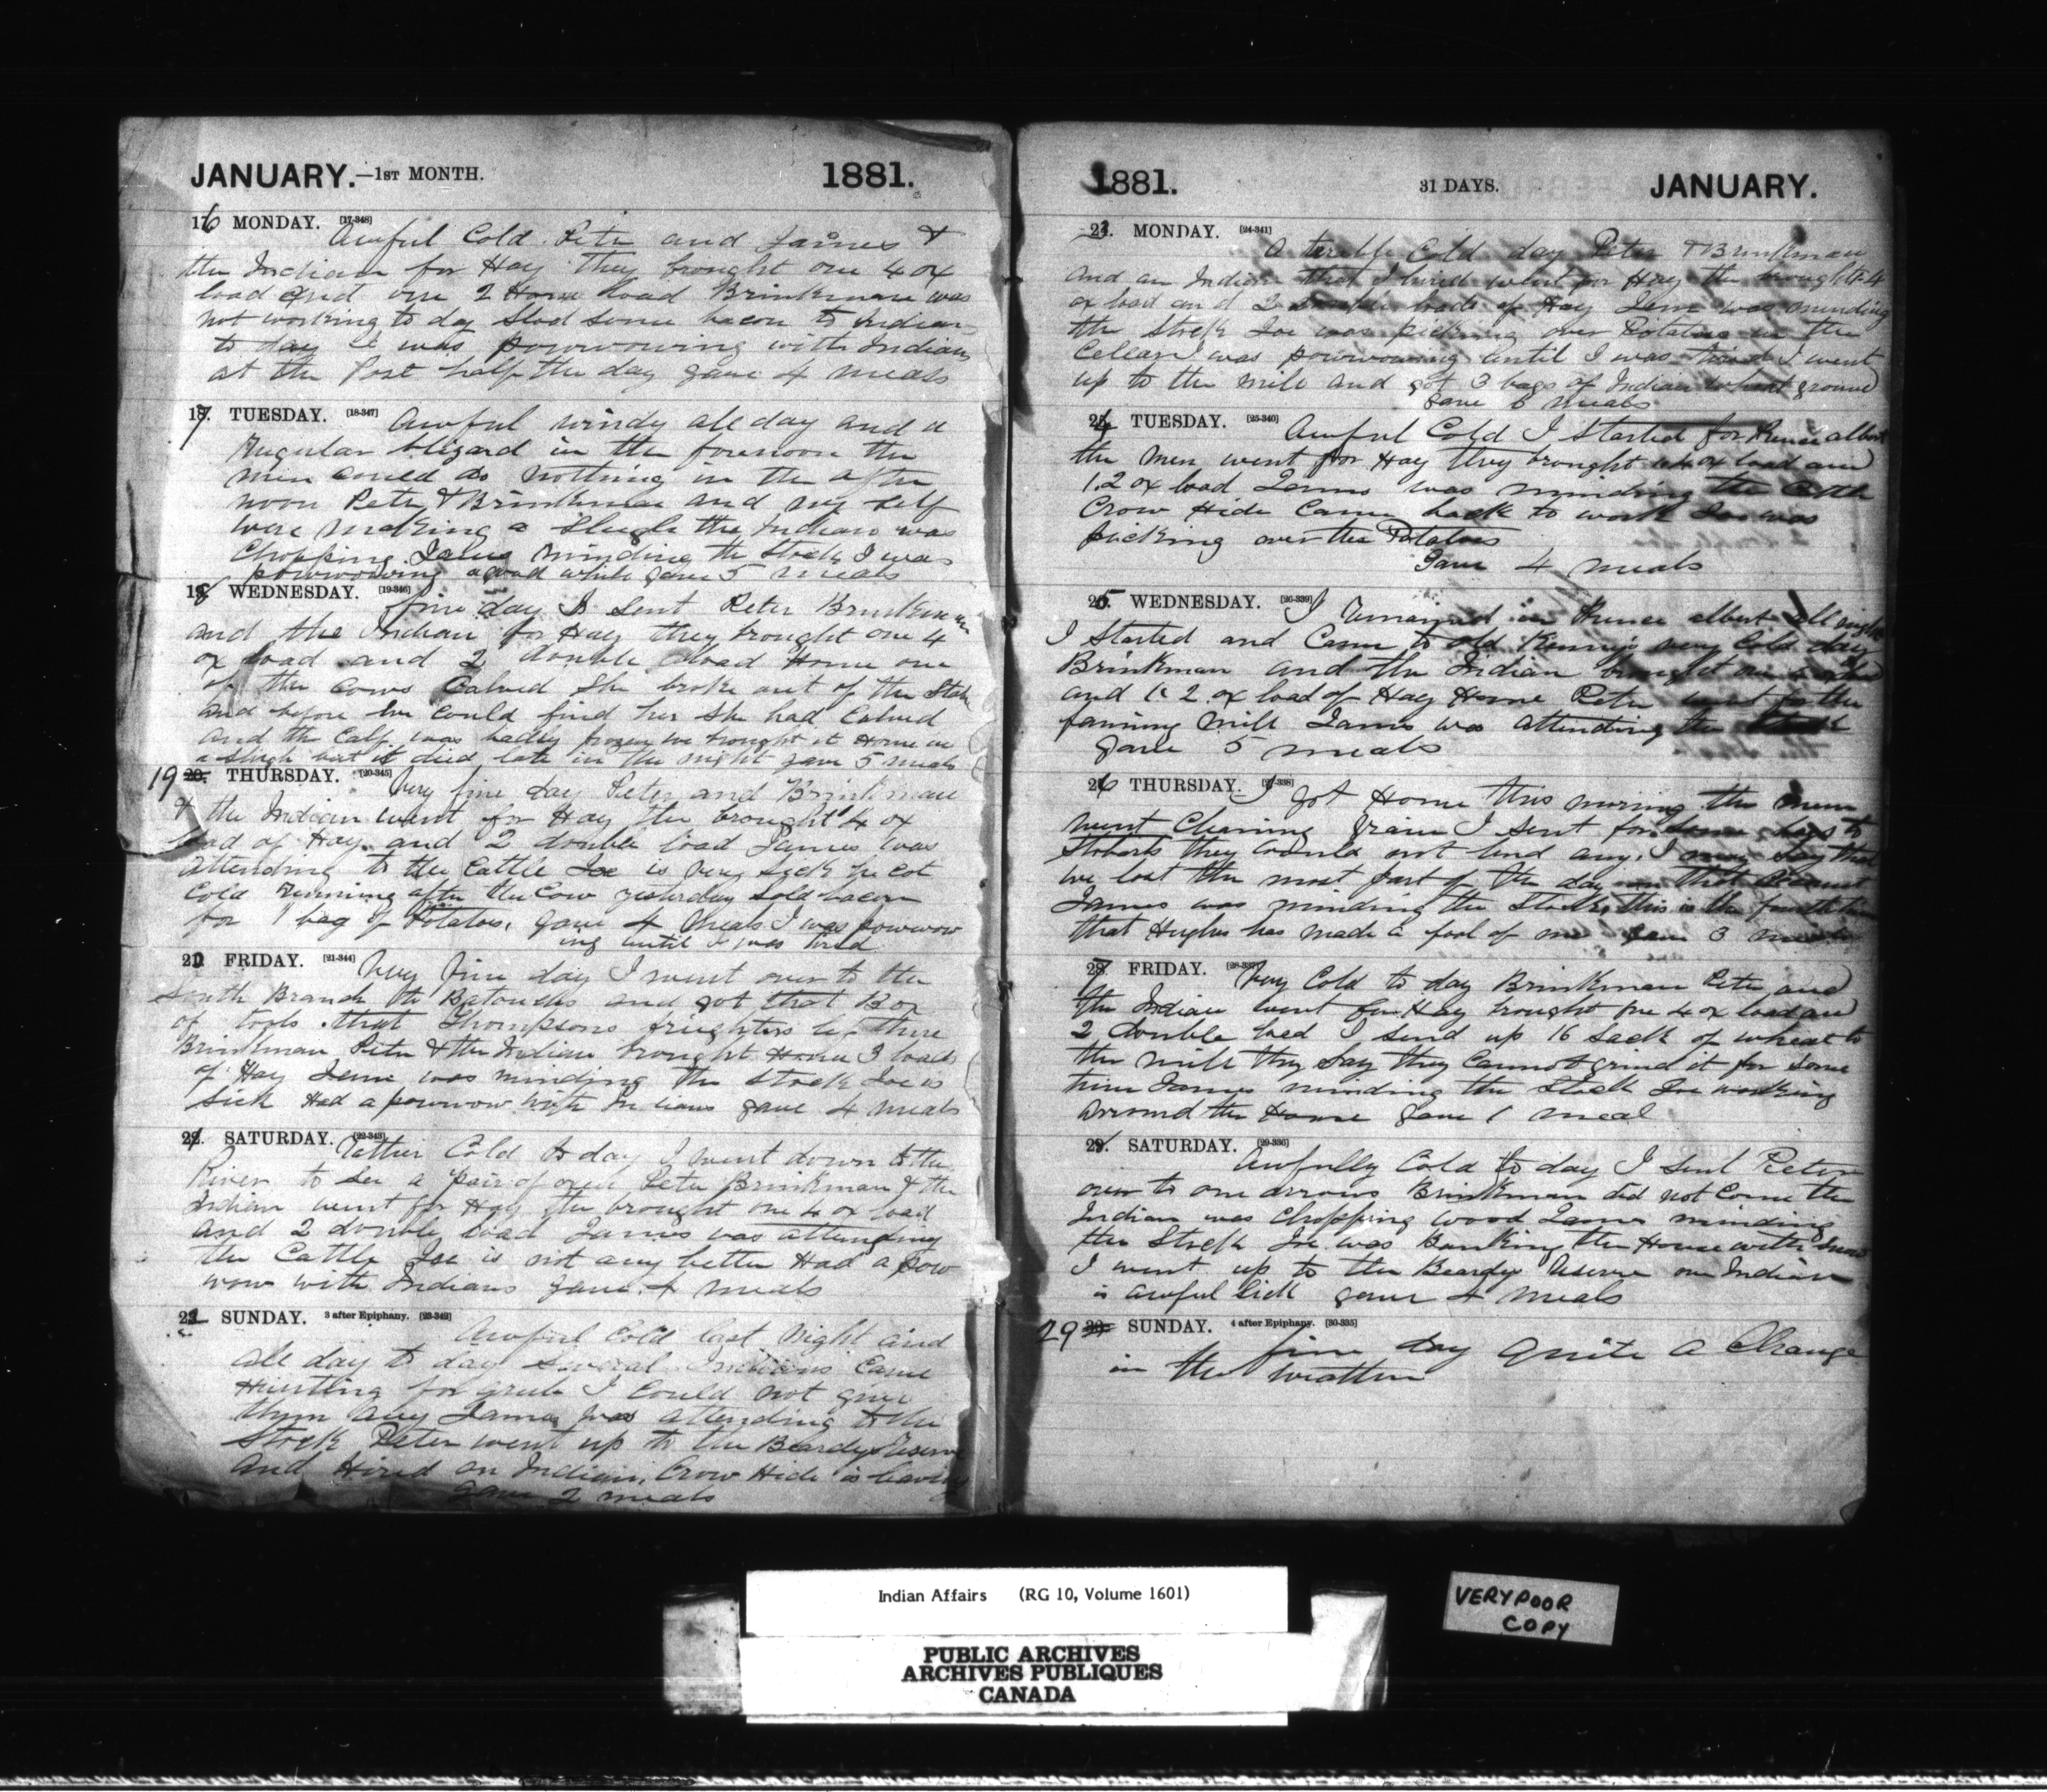 JANUARY.—1ST MONTH. 1881.
16 MONDAY. [17-348]
Awful Cold Peter and James &
the Indian for Hay they brought one 4 ox
load and one 2 Horse load Brinkman was
not working to day Slod some bacon to Indian
to day I was powwowing with Indians
at the Post half the day gave 4 meals
17. TUESDAY. [18-347] Awful windy all day and a
Regular bligard in the forenoon the
men could do nothing in the after
noon Peter & Brinkman and my self
were making a Sleigh the Indian was
Chopping James minding the Stock I was
powwowing a good while gave 5 meals
18 WEDNESDAY. [19-346] fine day I sent Peter Brinkman
and the Indian for Hay they brought one 4
ox load and 2 double load Home one
of the Cows Calved She broke out of the Stable
and before we could find her She had Calved
and the Calf was badly frozen we brought it Home in
a Sleigh but it died late in the night gave 5 meals
19 20. THURSDAY. [20-345] Very fine day Peter and Brinkman
& the Indian went for Hay the brought 4 ox
load of Hay and 2 double load James was
Attending to the Cattle Joe is very sick he Cot
Cold running after the Cow yesterday Sold bacon
for 1 bag of Potatoes. gave 4 Meals I was powwow
ing until I was tired
20 FRIDAY. [21-344] Very fine day I went over to the
South Branch the Batouchs and got that Box
of tools that Thompsons frieghters left there
Brinkman Peter & the Indian brought Home 3 loads
of Hay Jeme was minding the stock Joe is
sick Had a powwow with Indians gave 4 meals
21. SATURDAY. [22-343] Rather Cold to day I went down to the
River to see a pair of oxen Peter Brinkman & the
Indian went for Hay the brought one 4 ox load
and 2 double load James was attending
the Cattle Joe is not any better Had a pow
wow with Indians gave 4 meals
22 SUNDAY. 3 after Epiphany. [23-342]
Awful Cold last Night and
all day to day Several Indians Came
Hunting for grub I Could not give
them any James was attending to the
Stock Peter went up to the Beardys Reserve
and Hired an Indian. Crow Hide is leaving
gave 2 meals
1881. 31 DAYS. JANUARY.
23. MONDAY. [24-341]
A terible Cold day Peter & Brinkman
and an Indian that I hired went for Hay the brought 4
ox load and 2 double loads of Hay Jeme was minding
the Stock Joe was picking over Potatoes in the
Celler I was powwowing until I was tired I went
up to the mill and got 3 bags of Indian wheat ground
gave 6 meals
24 TUESDAY. [25-340] Awful Cold I Started for Prince albert
the men went for Hay they brought 1.4 ox load and
1.2 ox load James was minding the Cattle
Crow Hide Came back to work Joe was
picking over the Potatoes
Gave 4 meals
25. WEDNESDAY. [26-339] I remained in Prince albert all night
I Started and Came to old very Cold day
Brinkman and the Indian brought
and 1. 2. ox load of Hay Home Peter went for the
faning mill James was attending the Stock
gave 5 meals
26 THURSDAY. [27-338] I got Home this morning the men
went Cleaning Grain I sent for some bags to
Stobarts they would not lend any. I may Say that
we lost the most part of the day on that account
James was minding the Stock, this is the fourth time
that Hughes has made a fool of me gave 3 meals
27. FRIDAY. [28-337] Very Cold to day Brinkman Peter and
the Indian went for Hay brought one 4 ox load and
2 double load I send up 16 sack of wheat to
the mill they Say they Cannot grind it for some
time James minding the Stock Joe working
around the Home gave 1 meal
28. SATURDAY. [29-336]
Awfully Cold to day I sent Peter
over to one arrows Brinkman did not Come the
Indian was Chopping wood James minding
the Stock Joe was Banking the House with Snow
I went up to the Beardy Reserve one Indian
is awful Sick gave 4 Meals
29 30. SUNDAY. 4 after Epiphany. [30-335]
fine day Quite a Change
in the weather
Indian Affairs (RG 10, Volume 1601)
PUBLIC ARCHIVES
ARCHIVES PUBLIQUES
CANADA
VERY POOR
COPY